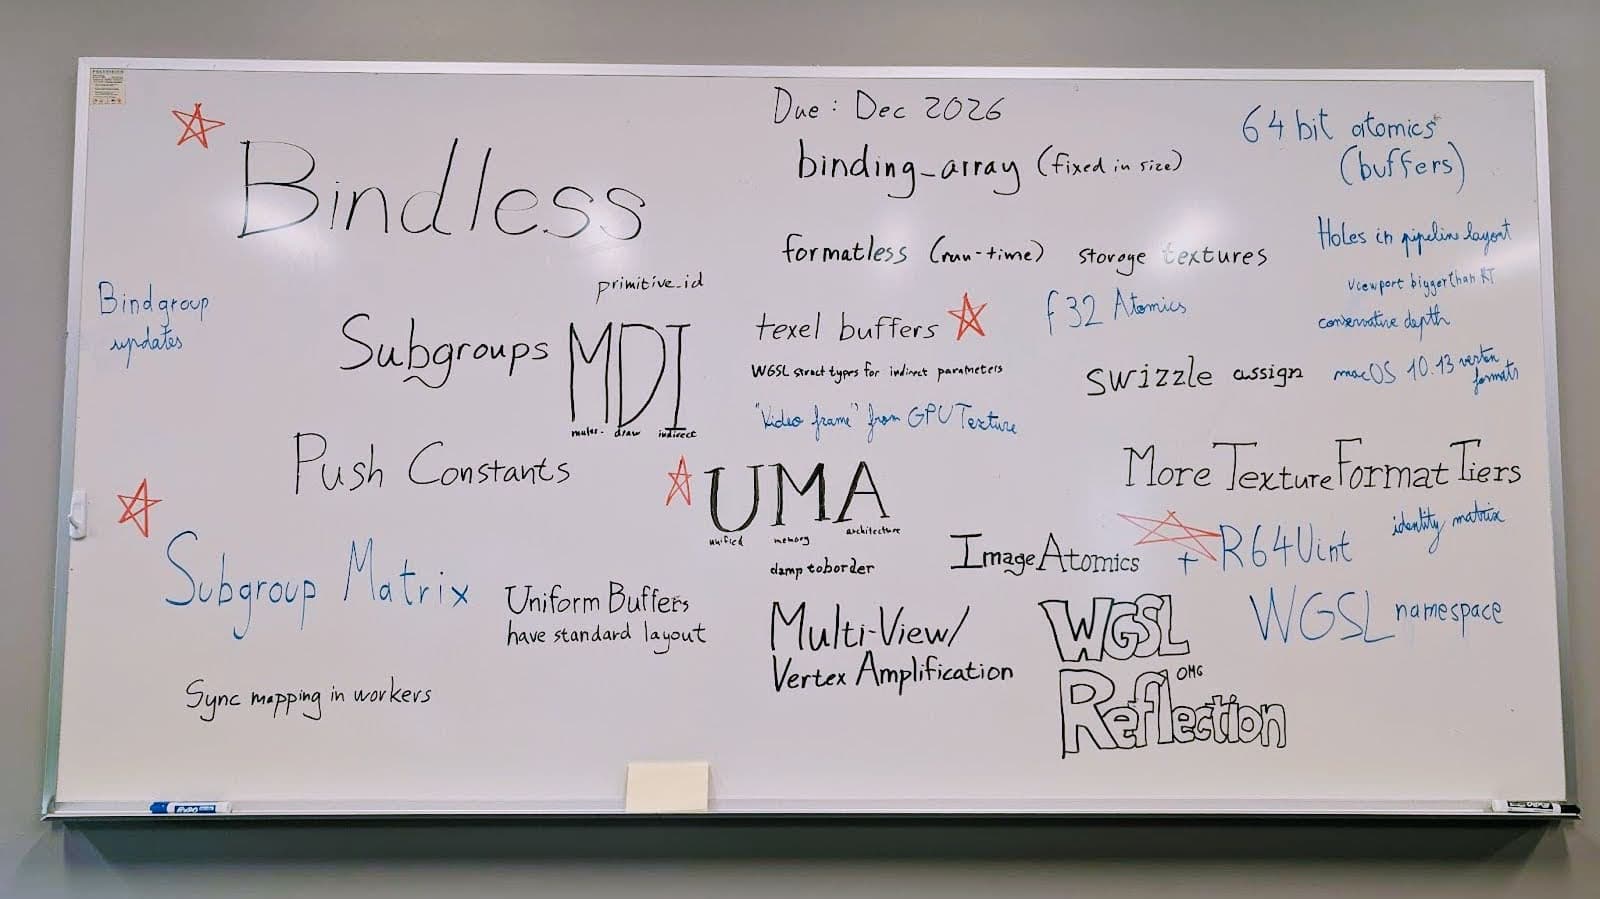 Due: Dec 2026
Bindless
binding_array (fixed in size)
64 bit atomics
(buffers)
formatless (run-time) storage textures
Holes in pipeline layout
viewport bigger than RT
conservative depth
macOS 10.13 vertex
formats
Bindgroup
updates
primitive_id
Subgroups
MDI
multi- draw indirect
texel buffers
f32 Atomics
WGSL struct types for indirect parameters
swizzle assign
"Video frame" from GPUTexture
Push Constants
UMA
unified memory architecture
More Texture Format Tiers
identity matrix
Subgroup Matrix
Image Atomics + R64Uint
Uniform Buffers
have standard layout
Multi-View/
Vertex Amplification
WGSL
OMG
Reflection
WGSL namespace
Sync mapping in workers
EXPO
EXPO